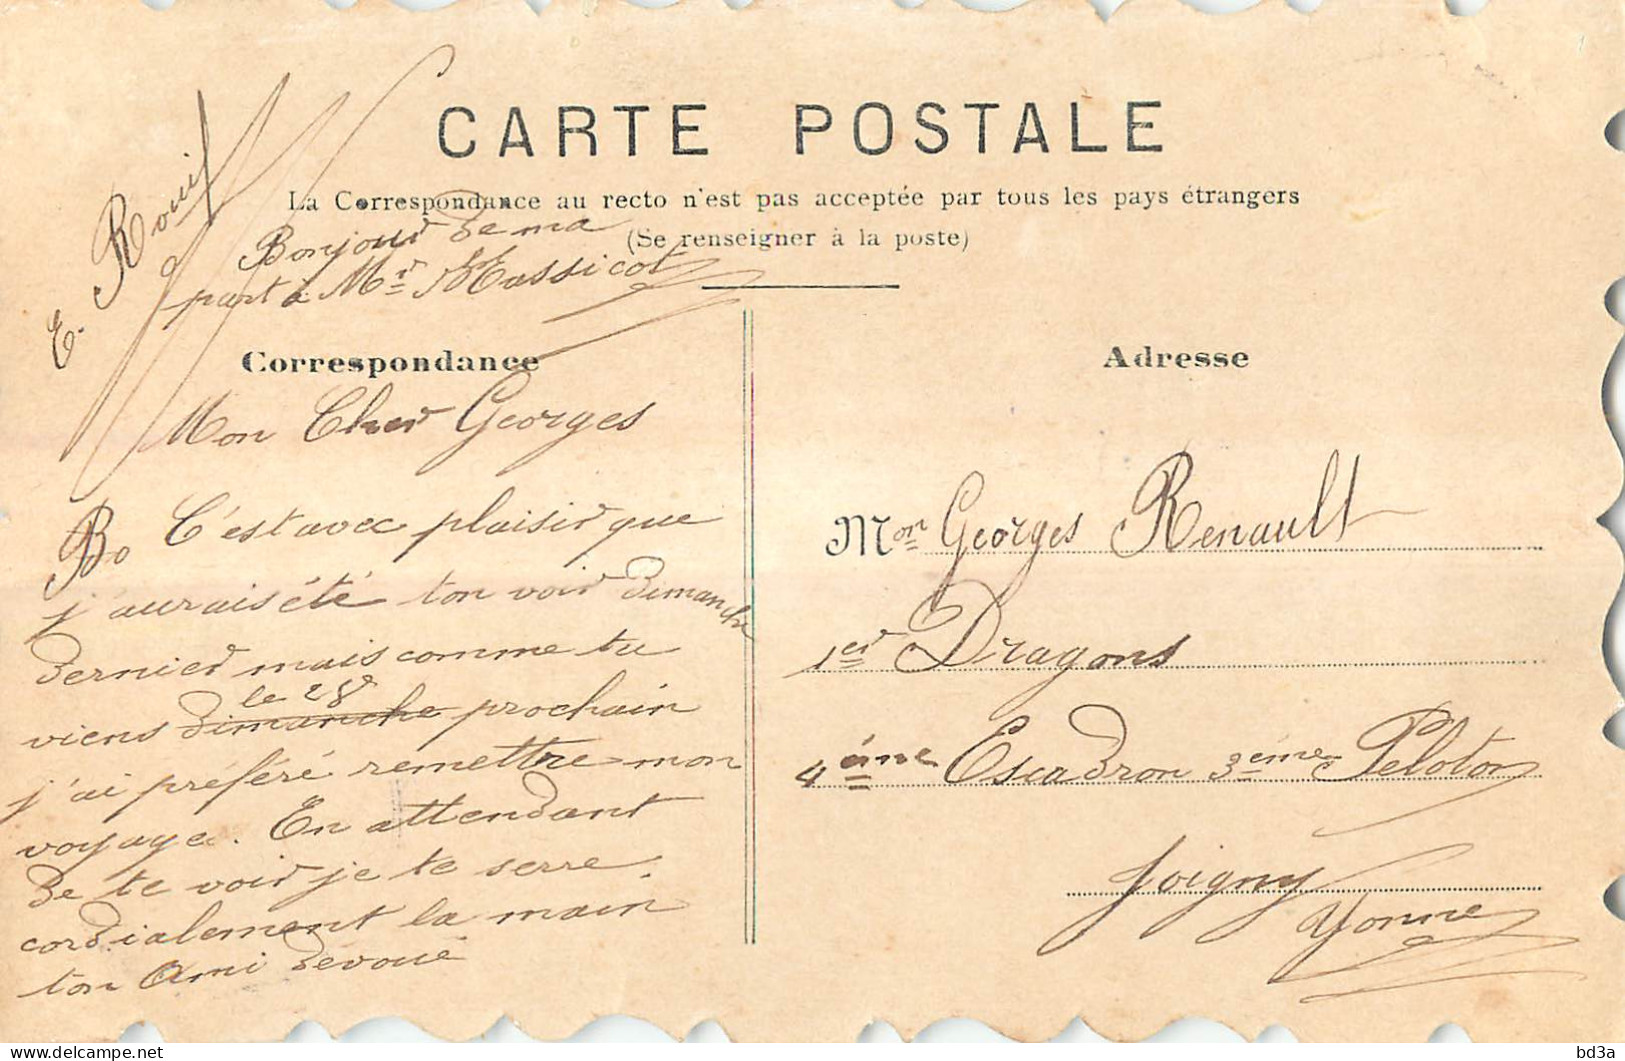 CARTE POSTALE
La Correspondance au recto n'est pas acceptée par tous les pays étrangers
(Se renseigner à la poste)
Bonjour de ma
part à Mr Massicot
E. Rouif
Correspondance
Mon Cher Georges
Bo C'est avec plaisir que
j'aurais été ton voir dimanche
dernier mais comme tu
le 28
viens dimanche prochain
j'ai préféré remettre mon
voyage. En attendant
de te voir je te serre
cordialement la main
ton Ami dévoué
Adresse
Mon Georges Renault
1er Dragons
4éme Escadron 3éme Peloton
Joigny
Yonne
bd3a
delcampe.net